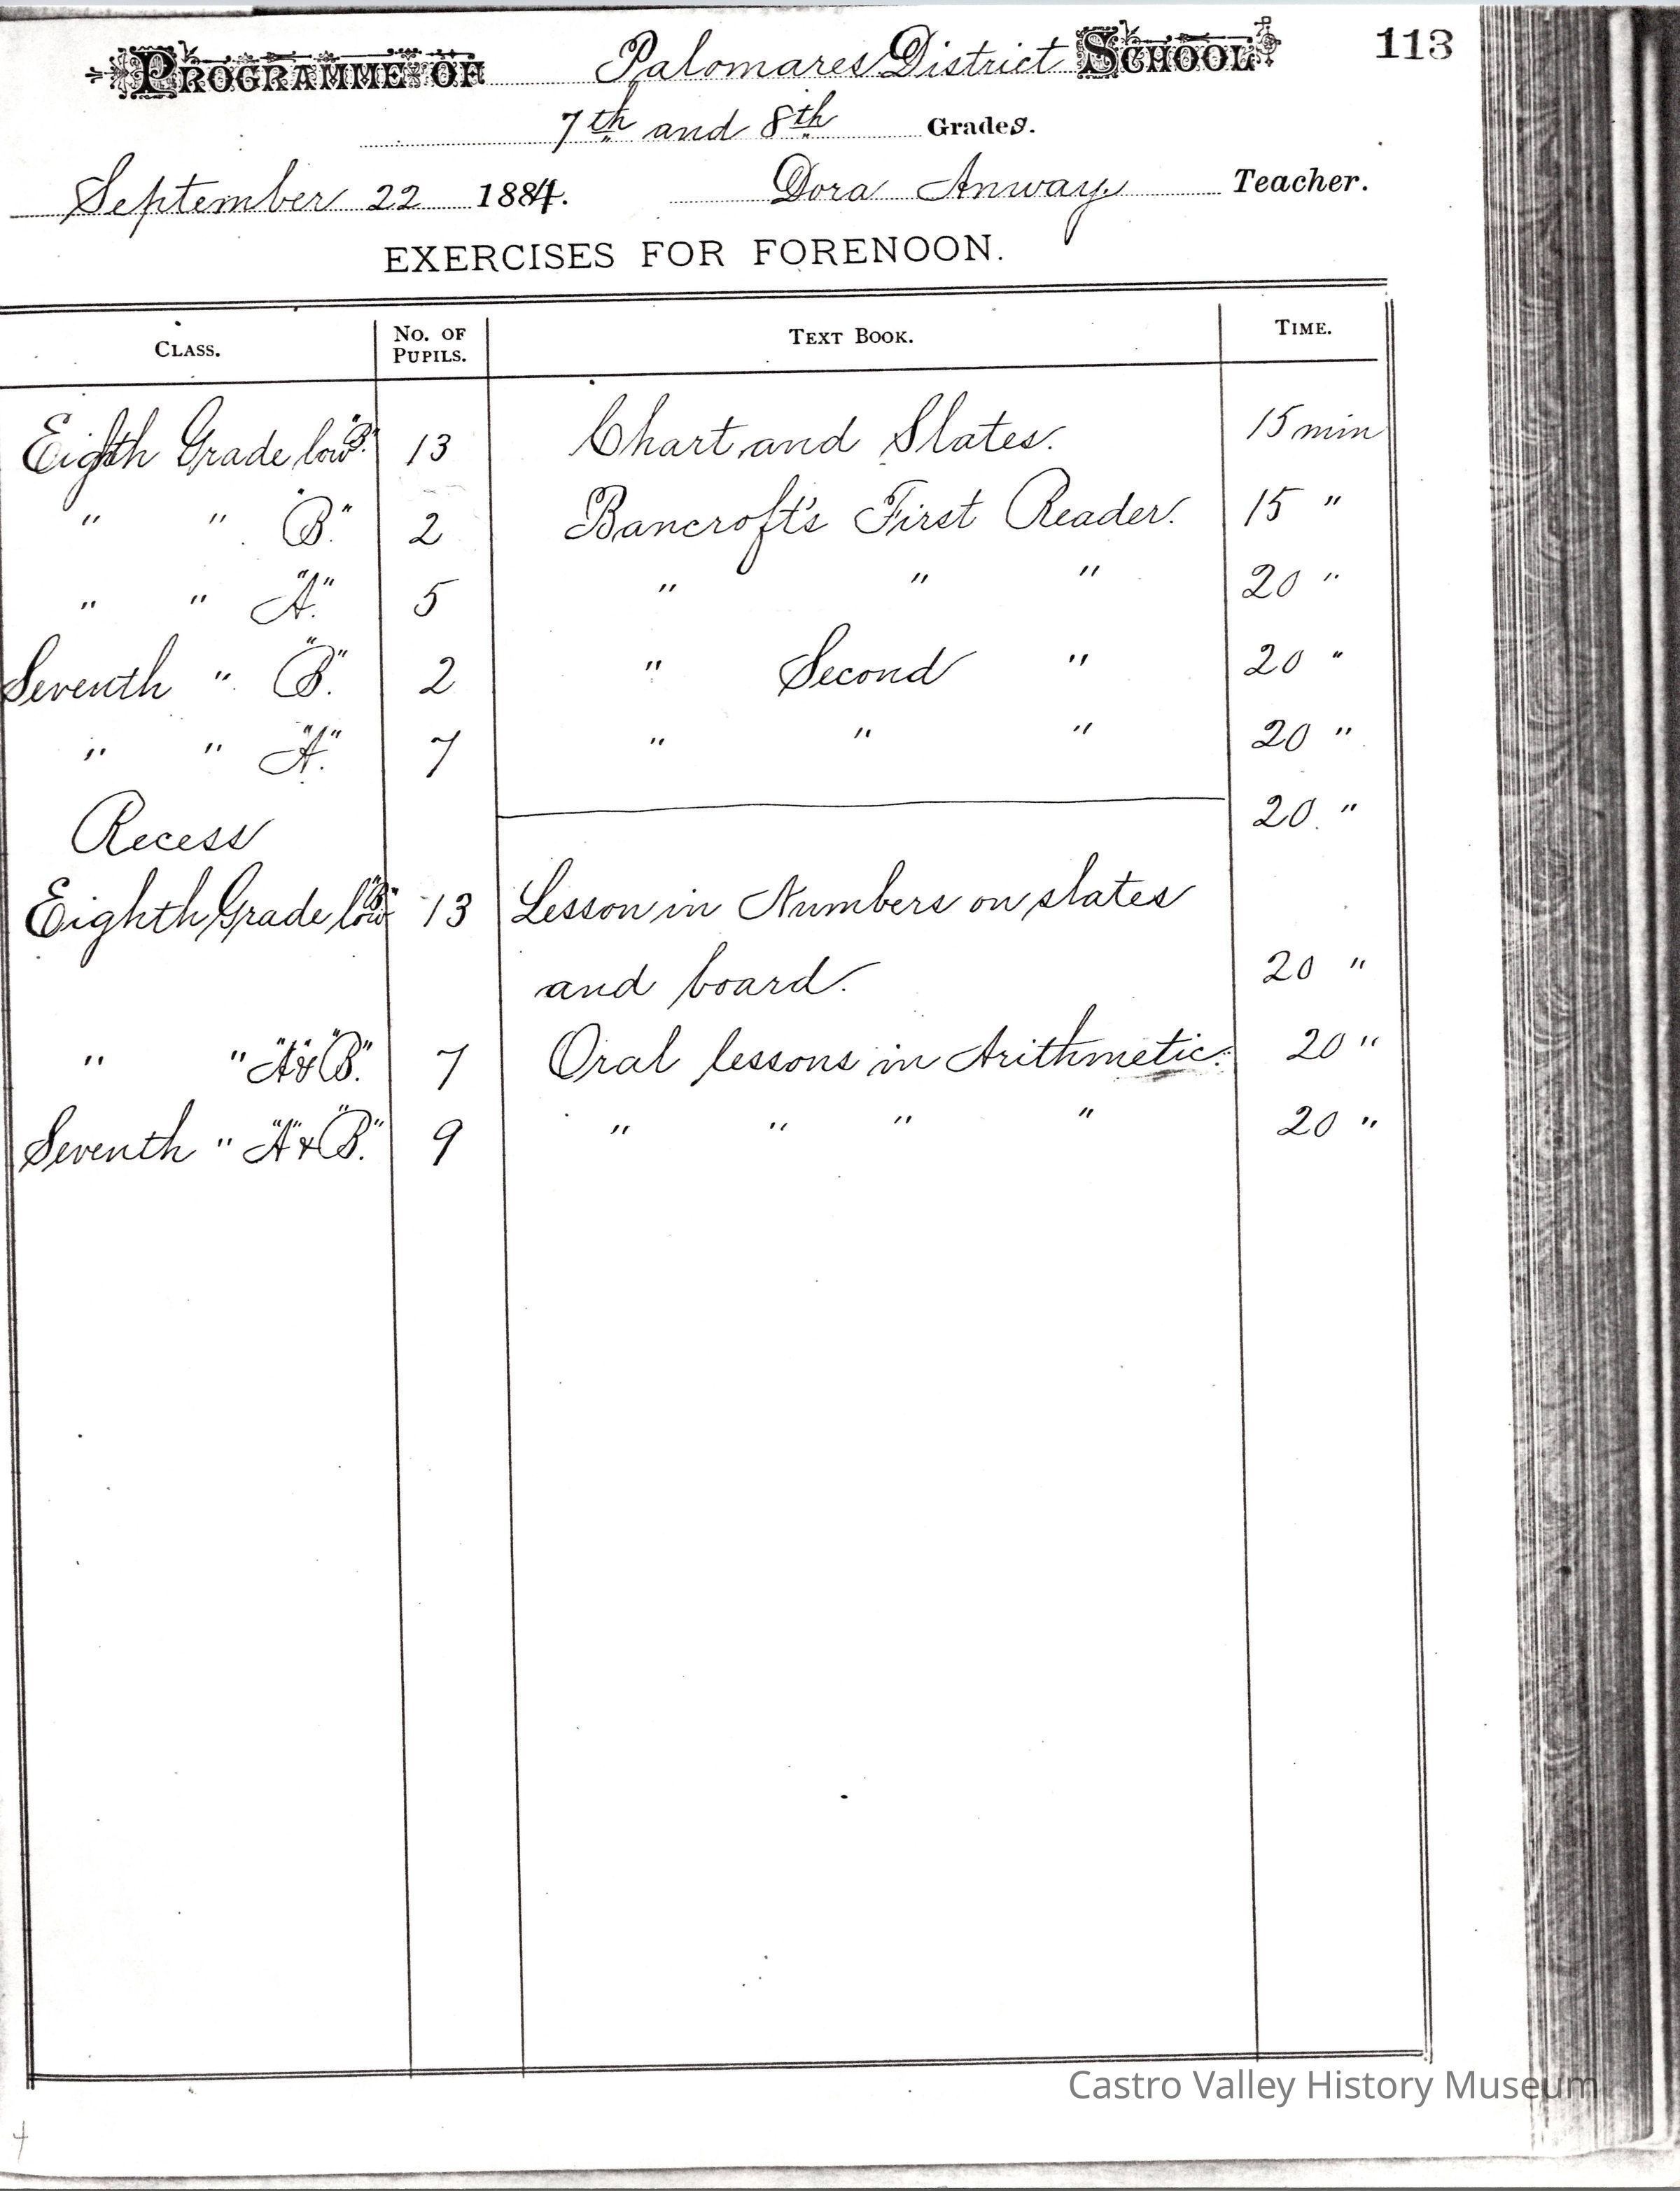 113
PROGRAMME OF Palomares District SCHOOL
7th and 8th Grades.
September 22 1884. Dora Anway Teacher.
EXERCISES FOR FORENOON.
CLASS. NO. OF PUPILS. TEXT BOOK. TIME.
Eighth Grade low "B". 13 Chart and Slates. 15 min
" " "B." 2 Bancroft's First Reader. 15 "
" " "A." 5 " " " 20 "
Seventh " "B." 2 " Second " 20 "
" " "A." 7 " " " 20 "
Recess 20 "
Eighth Grade low "B" 13 Lesson in Numbers on slates
and board. 20 "
" " "A" & "B." 7 Oral lessons in Arithmetic. 20 "
Seventh " "A" & "B." 9 " " " " 20 "
Castro Valley History Museum